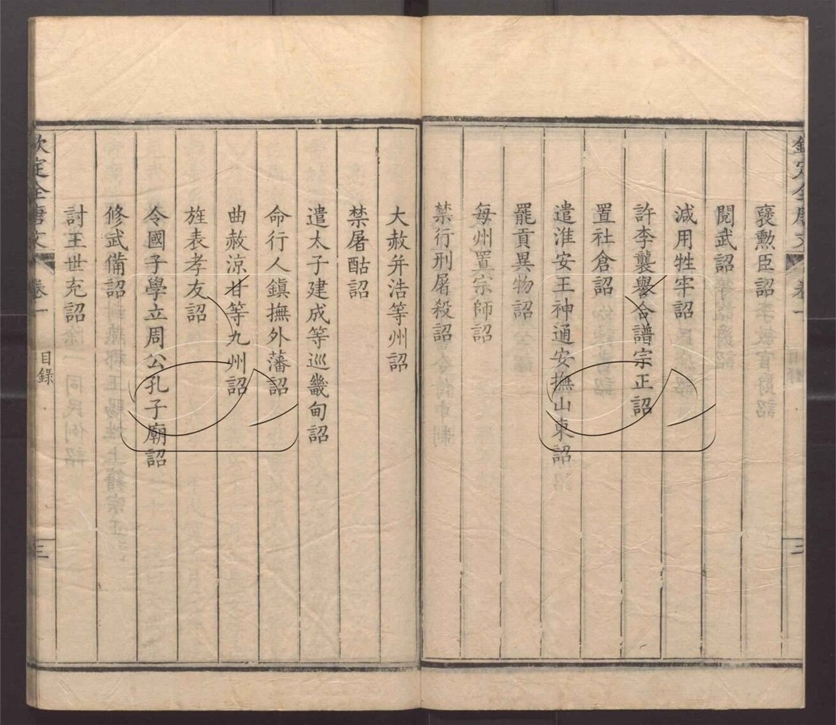 欽定全唐文 卷一
三
褒勲臣詔
閱武詔
減用牲牢詔
許李襲譽合譜宗正詔
置社倉詔
遣淮安王神通安撫山東詔
罷貢異物詔
每州置宗師詔
禁行刑屠殺詔
大赦并浩等州詔
禁屠酤詔
遣太子建成等巡畿甸詔
命行人鎮撫外藩詔
曲赦涼甘等九州詔
旌表孝友詔
令國子學立周公孔子廟詔
修武備詔
討王世充詔
欽定全唐文 卷一 目録
三